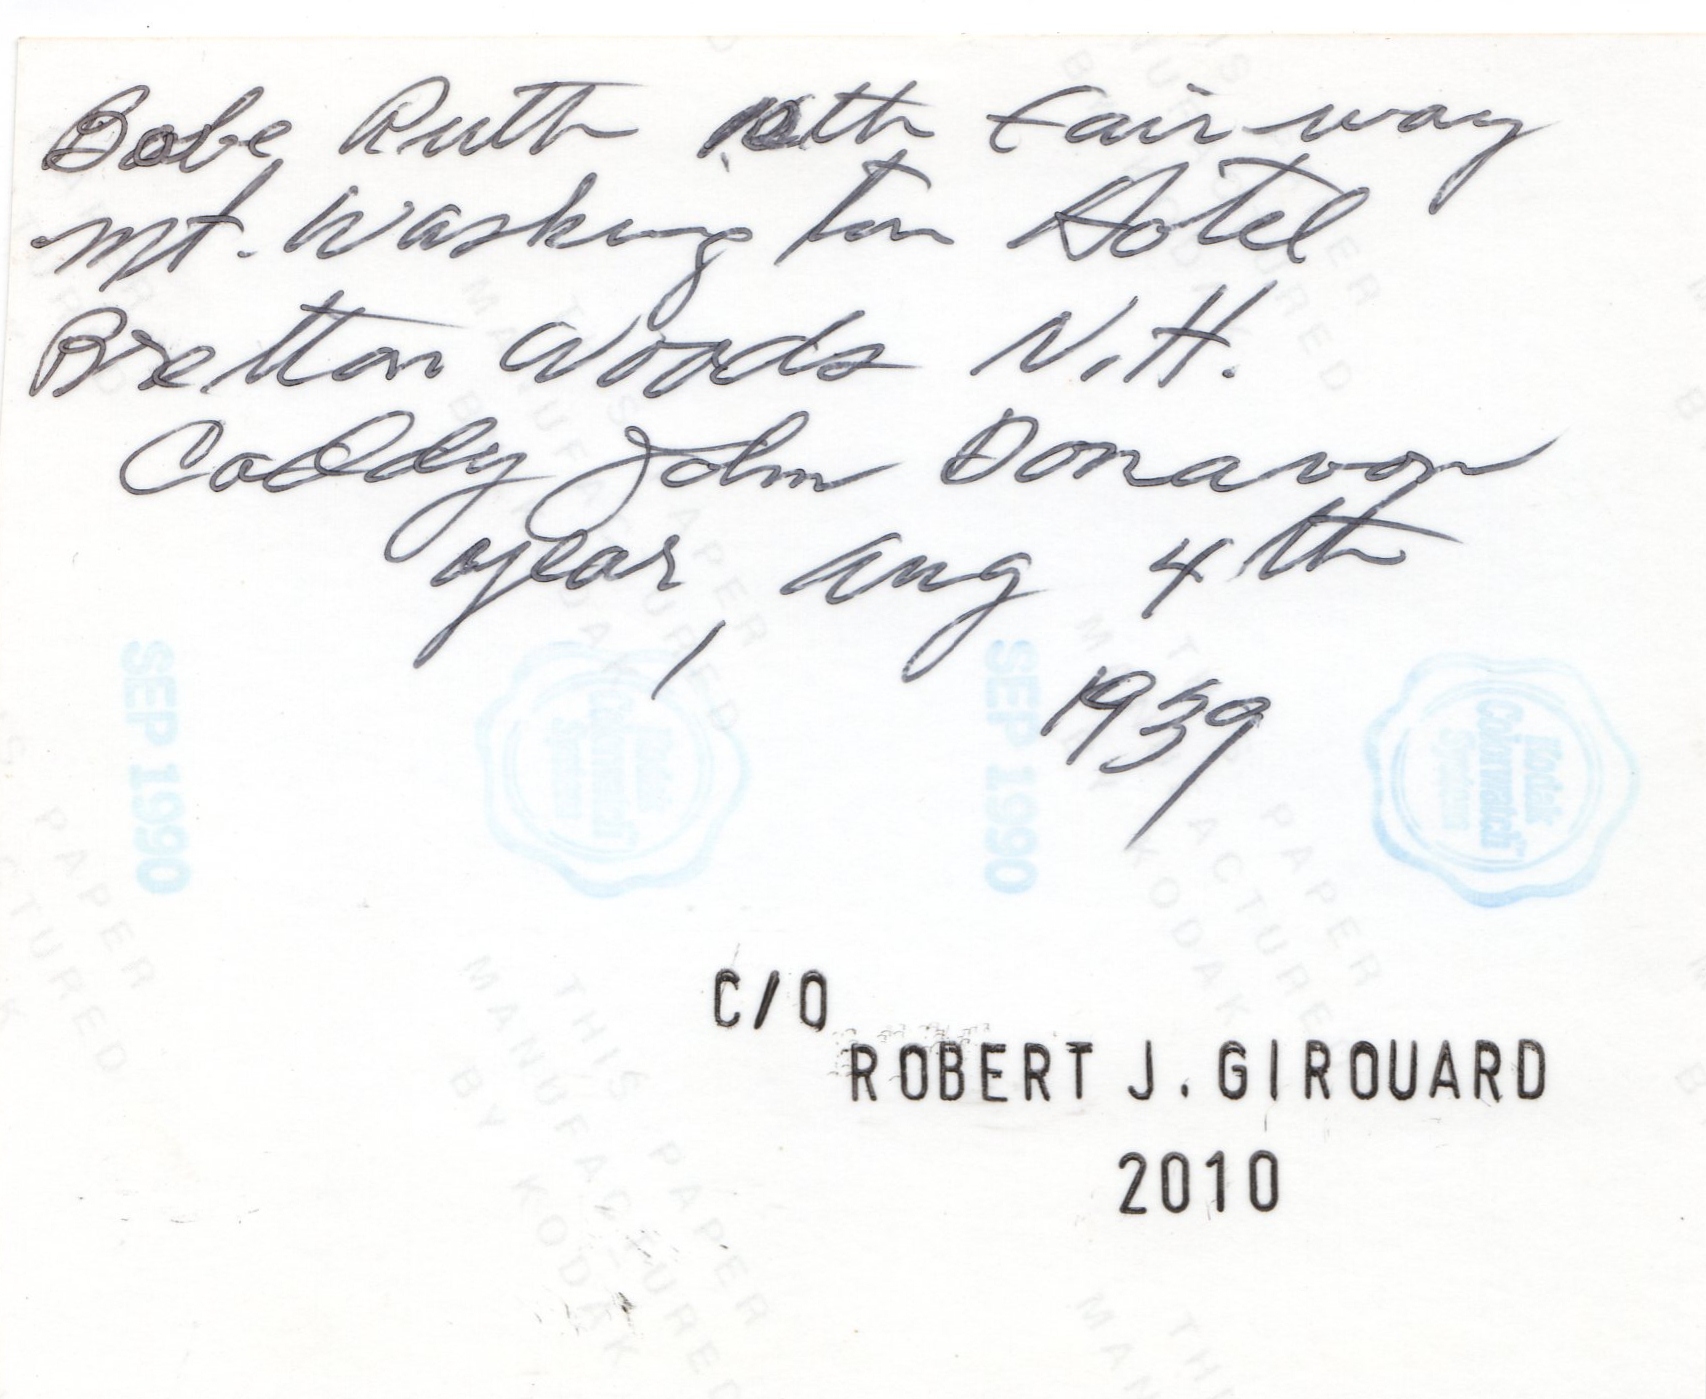 Babe Ruth 10th Fairway
Mt. Washington Hotel
Bretton Woods N.H.
Caddy John Donavon
year, Aug 4th
1939
SEP 1990
Kodak
Colorwatch
System
SEP 1990
Kodak
Colorwatch
System
THIS PAPER
MANUFACTURED
BY KODAK
C/O
ROBERT J. GIROUARD
2010